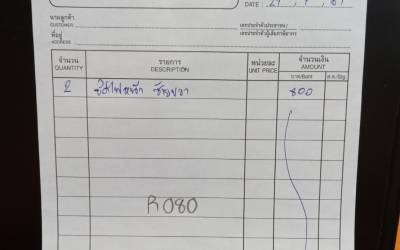 DATE :
นามลูกค้า
CUSTOMER
เลขประจำตัวประชาชน /
เลขประจำตัวผู้เสียภาษีอากร
ที่อยู่
ADDRESS
จำนวน รายการ หน่วยละ จำนวนเงิน
QUANTITY DESCRIPTION UNIT PRICE AMOUNT
บาท/Baht ส.ต./Stg.
2 800
R080